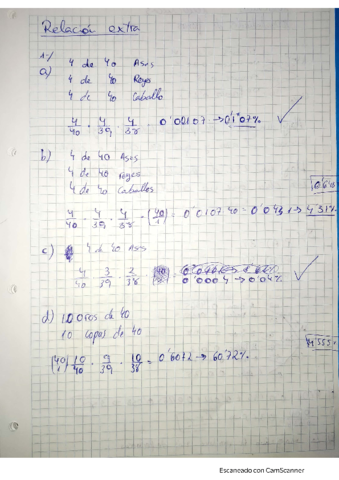 Relación extra
1-/
a) 4 de 40 Ases
4 de 40 Reyes
4 de 40 Caballo
4/40 · 4/39 · 4/38 = 0'00107 → 0'107%
b) 4 de 40 Ases
4 de 40 Reyes
4 de 40 Caballos
4/40 · 4/39 · 4/38
→ 4'31%
c) 4 de 40 Ases
4/40 3/39 2/38
0'0004 → 0'04%
d) 10 oros de 40
10 copas de 40
10/40 · 9/39 · 10/38 = 0'6072 → 60'72%
Escaneado con CamScanner